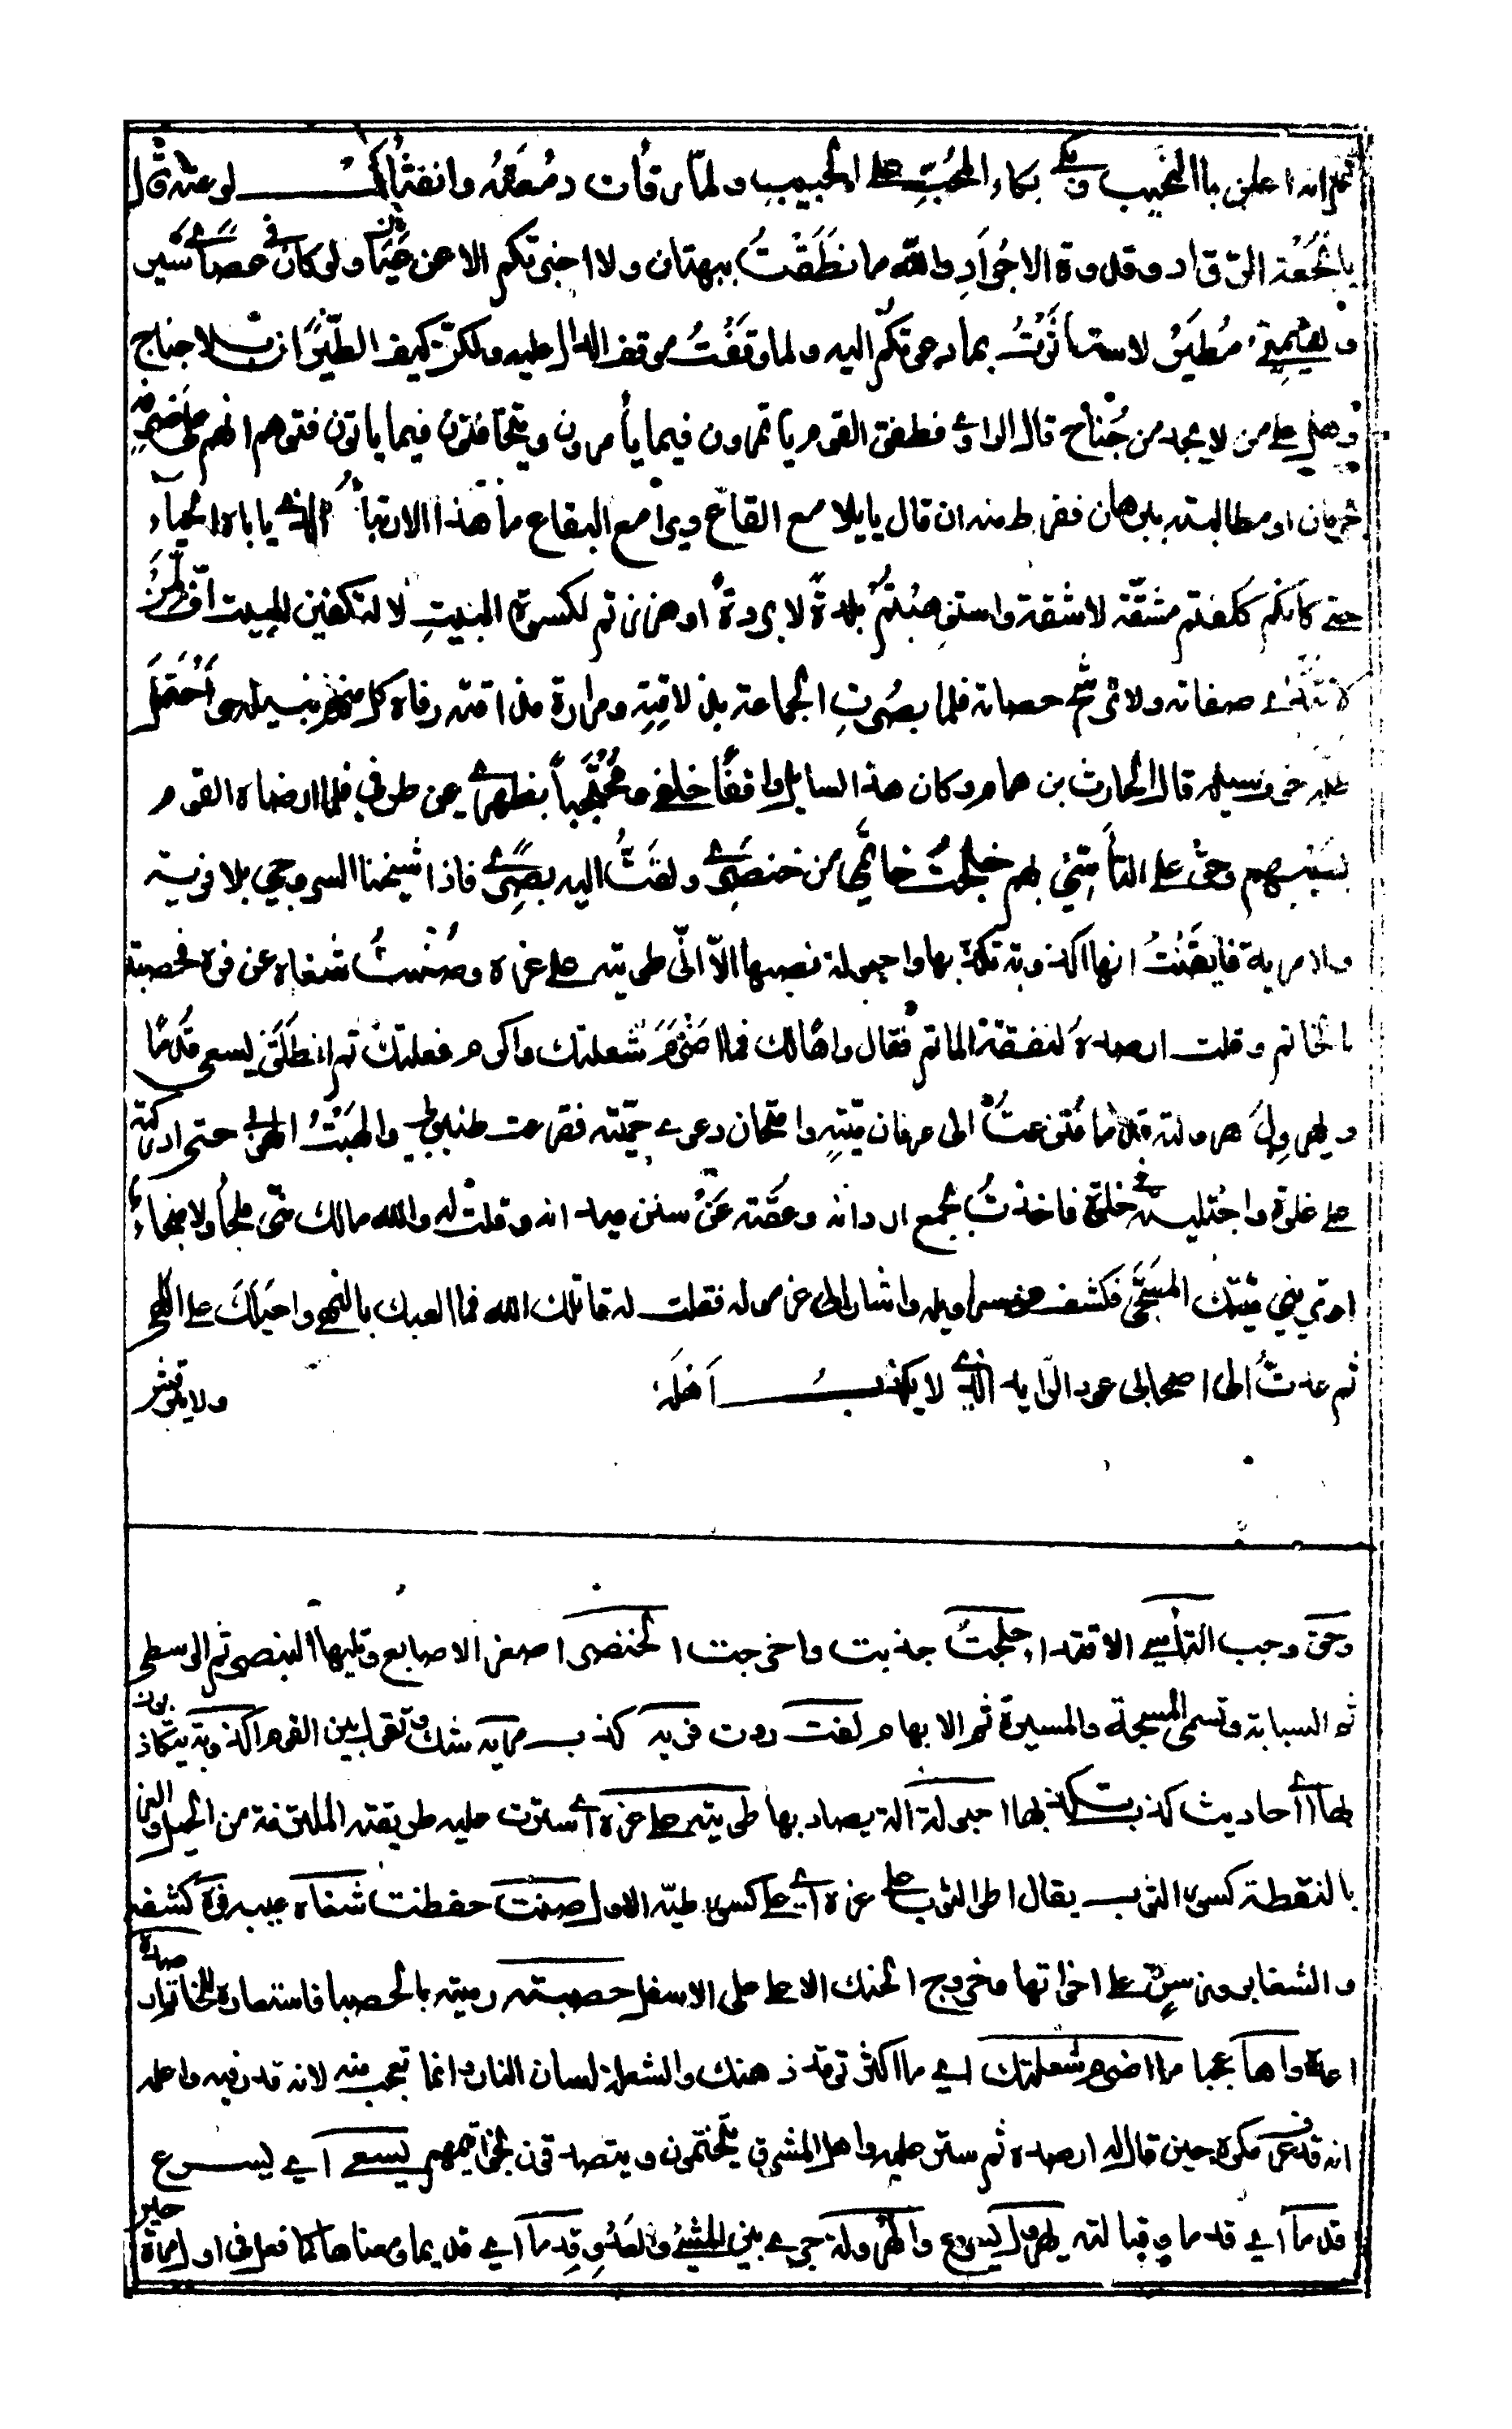 ثم انه اعلن بالنحيب وبكى بكاء المحب على الحبيب ولما رقأت دمعته وانفثأت لوعته قال
يا نجعة الرواد وقدوة الاجواد والله ما نطقت ببهتان ولا اخبرتكم الا عن عيان ولو كان في عصاى سير
ولغيمتي مطير لاستأثرت بما دعوتكم اليه ولما وقفت موقف الدال عليه ولكن كيف الطيران بلا جناح
وهل على من لا يجد من جناح قال الراوى فطفق القوم يأتمرون فيما يأمرون ويتخافتون فيما يأتون فتوهم انهم على صرفه
بحرمان او مطالبته ببرهان ففرط منه ان قال يا يلامع القاع ويرامع البقاع ما هذا الارتياء الذى يأباه الحياء
حتى كانكم كلفتم مشقة لا شقة واستوهبتم بلدة لا بردة او هززتم لكسوة البيت لا لتكفين الميت اف لمن
لا تندى صفاته ولا ترشح حصاته فلما بصرت الجماعة بذلاقته ومرارة مذاقته رفاه كل منهم بنيله واحتمل
طله خوف سيله قال الحارث بن همام وكان هذا السايل واقفا خلفي ومحتجبا بظهرى عن طرفي فلما ارضاه القوم
بسيبهم وحق على التأسي بهم خلجت خاتمي من خنصرى ولفت اليه بصرى فاذا شيخنا السروجي بلا فرية
ولا مرية فايقنت انها اكذوبة تكذبها واحبولة نصبها الا انى طويته على غره وصنت شغاه عن فره فحصبته
بالخاتم وقلت ارصده لنفقة الماتم فقال واها لك فما اضرم شعلتك واكرم فعلتك ثم انطلق يسعى قدما
ويهرول هرولته قدما فنزعت الى عرفان ميته وامتحان دعوى حميته فقرعت ظنبوبي والهبت الهوبي حتى ادركته
على غلوة واجتليته في خلوة فاخذت بجمع اردانه وعقته عن سنن ميدانه وقلت له والله مالك مني ملجأ ولا منجاء
او تريني ميتك المسجى فكشف عن سراويله واشار الى غرموله فقلت له قاتلك الله فما العبك بالنهى واحيلك على اللهى
ثم عدت الى اصحابى عود الرايد الذى لا يكذب اهله ولا يبرقش
وحق وجب التأسى الاقتداء خلجت جذبت واخرجت الخنصر اصغر الاصابع وتليها البنصر ثم الوسطى
ثم السبابة وتسمى المسبحة والمسيرة ثم الابهام لفت ردت فرية كذب مرية شك وتقول بين القوم اكذوبة يتكاذبون
بها اى أحاديث كذب تكذبها احبولة الة يصاد بها طويته على غره اى سترت عليه طريقته الملفقة من الحيل والغر
بالنقطة كسر الثوب يقال اطو الثوب على غره اى على كسر طيه الاول صنت حفظت شغاه عيبه فره كشفه
والشغا بروز سن على اخواتها وخروج الحنك الاعلى على الاسفل حصبته رميته بالحصبا فاستعاره للخاتم ارصده
اعده واها عجبا ما اضرم شعلتك اى ما اكثر توقد ذهنك والشعلة لسان النار وانما تعجب منه لانه قدر فيه واعلمه
انه قد عرف مكره حين قال له ارصده ثم ستر عليه واهل المشرق يتختمون ويتصدقون بخواتمهم يسعى اى يسرع
قدما اى قدما وقبالته يهرول يسرع والهرولة جرى بين المشي والعدو قدما اى قديما ومعناها كما فعل في اول مرة حين